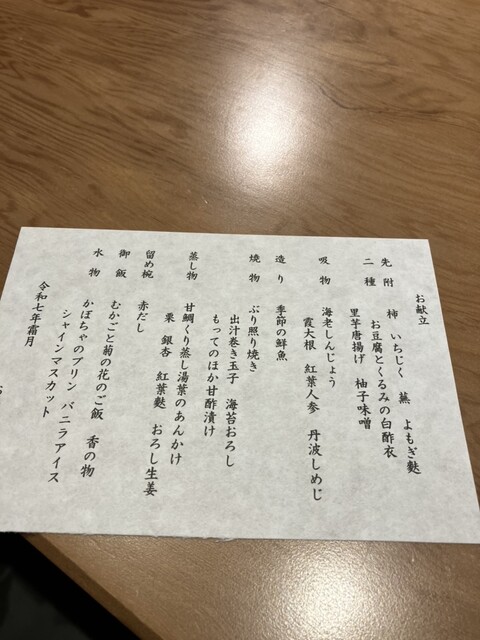 お献立
先附 二種
柿 いちじく 蕪 よもぎ麩
お豆腐とくるみの白酢衣
里芋唐揚げ 柚子味噌
吸物
海老しんじょう
霞大根 紅葉人参 丹波しめじ
造り
季節の鮮魚
焼物
ぶり照り焼き
出汁巻き玉子 海苔おろし
もってのほか甘酢漬け
蒸し物
甘鯛くり蒸し湯葉のあんかけ
栗 銀杏 紅葉麩 おろし生姜
留め椀
赤だし
御飯
むかごと菊の花のご飯 香の物
水物
かぼちゃのプリン バニラアイス
シャインマスカット
令和七年霜月